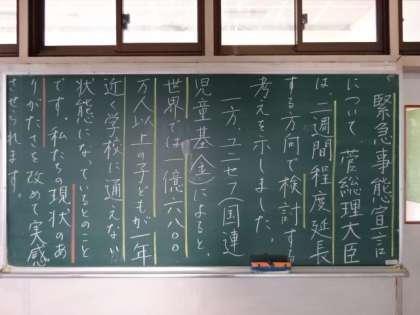 緊急事態宣言
について菅総理大臣
は、二週間程度延長
する方向で検討する
考えを示しました。
一方、ユニセフ(国連
児童基金)によると、
世界では一億六八〇〇
万人以上の子どもが一年
近く学校に通えない
状態になっているとのこと
です。私たちの現状のあ
りがたさを改めて実感
させられます。